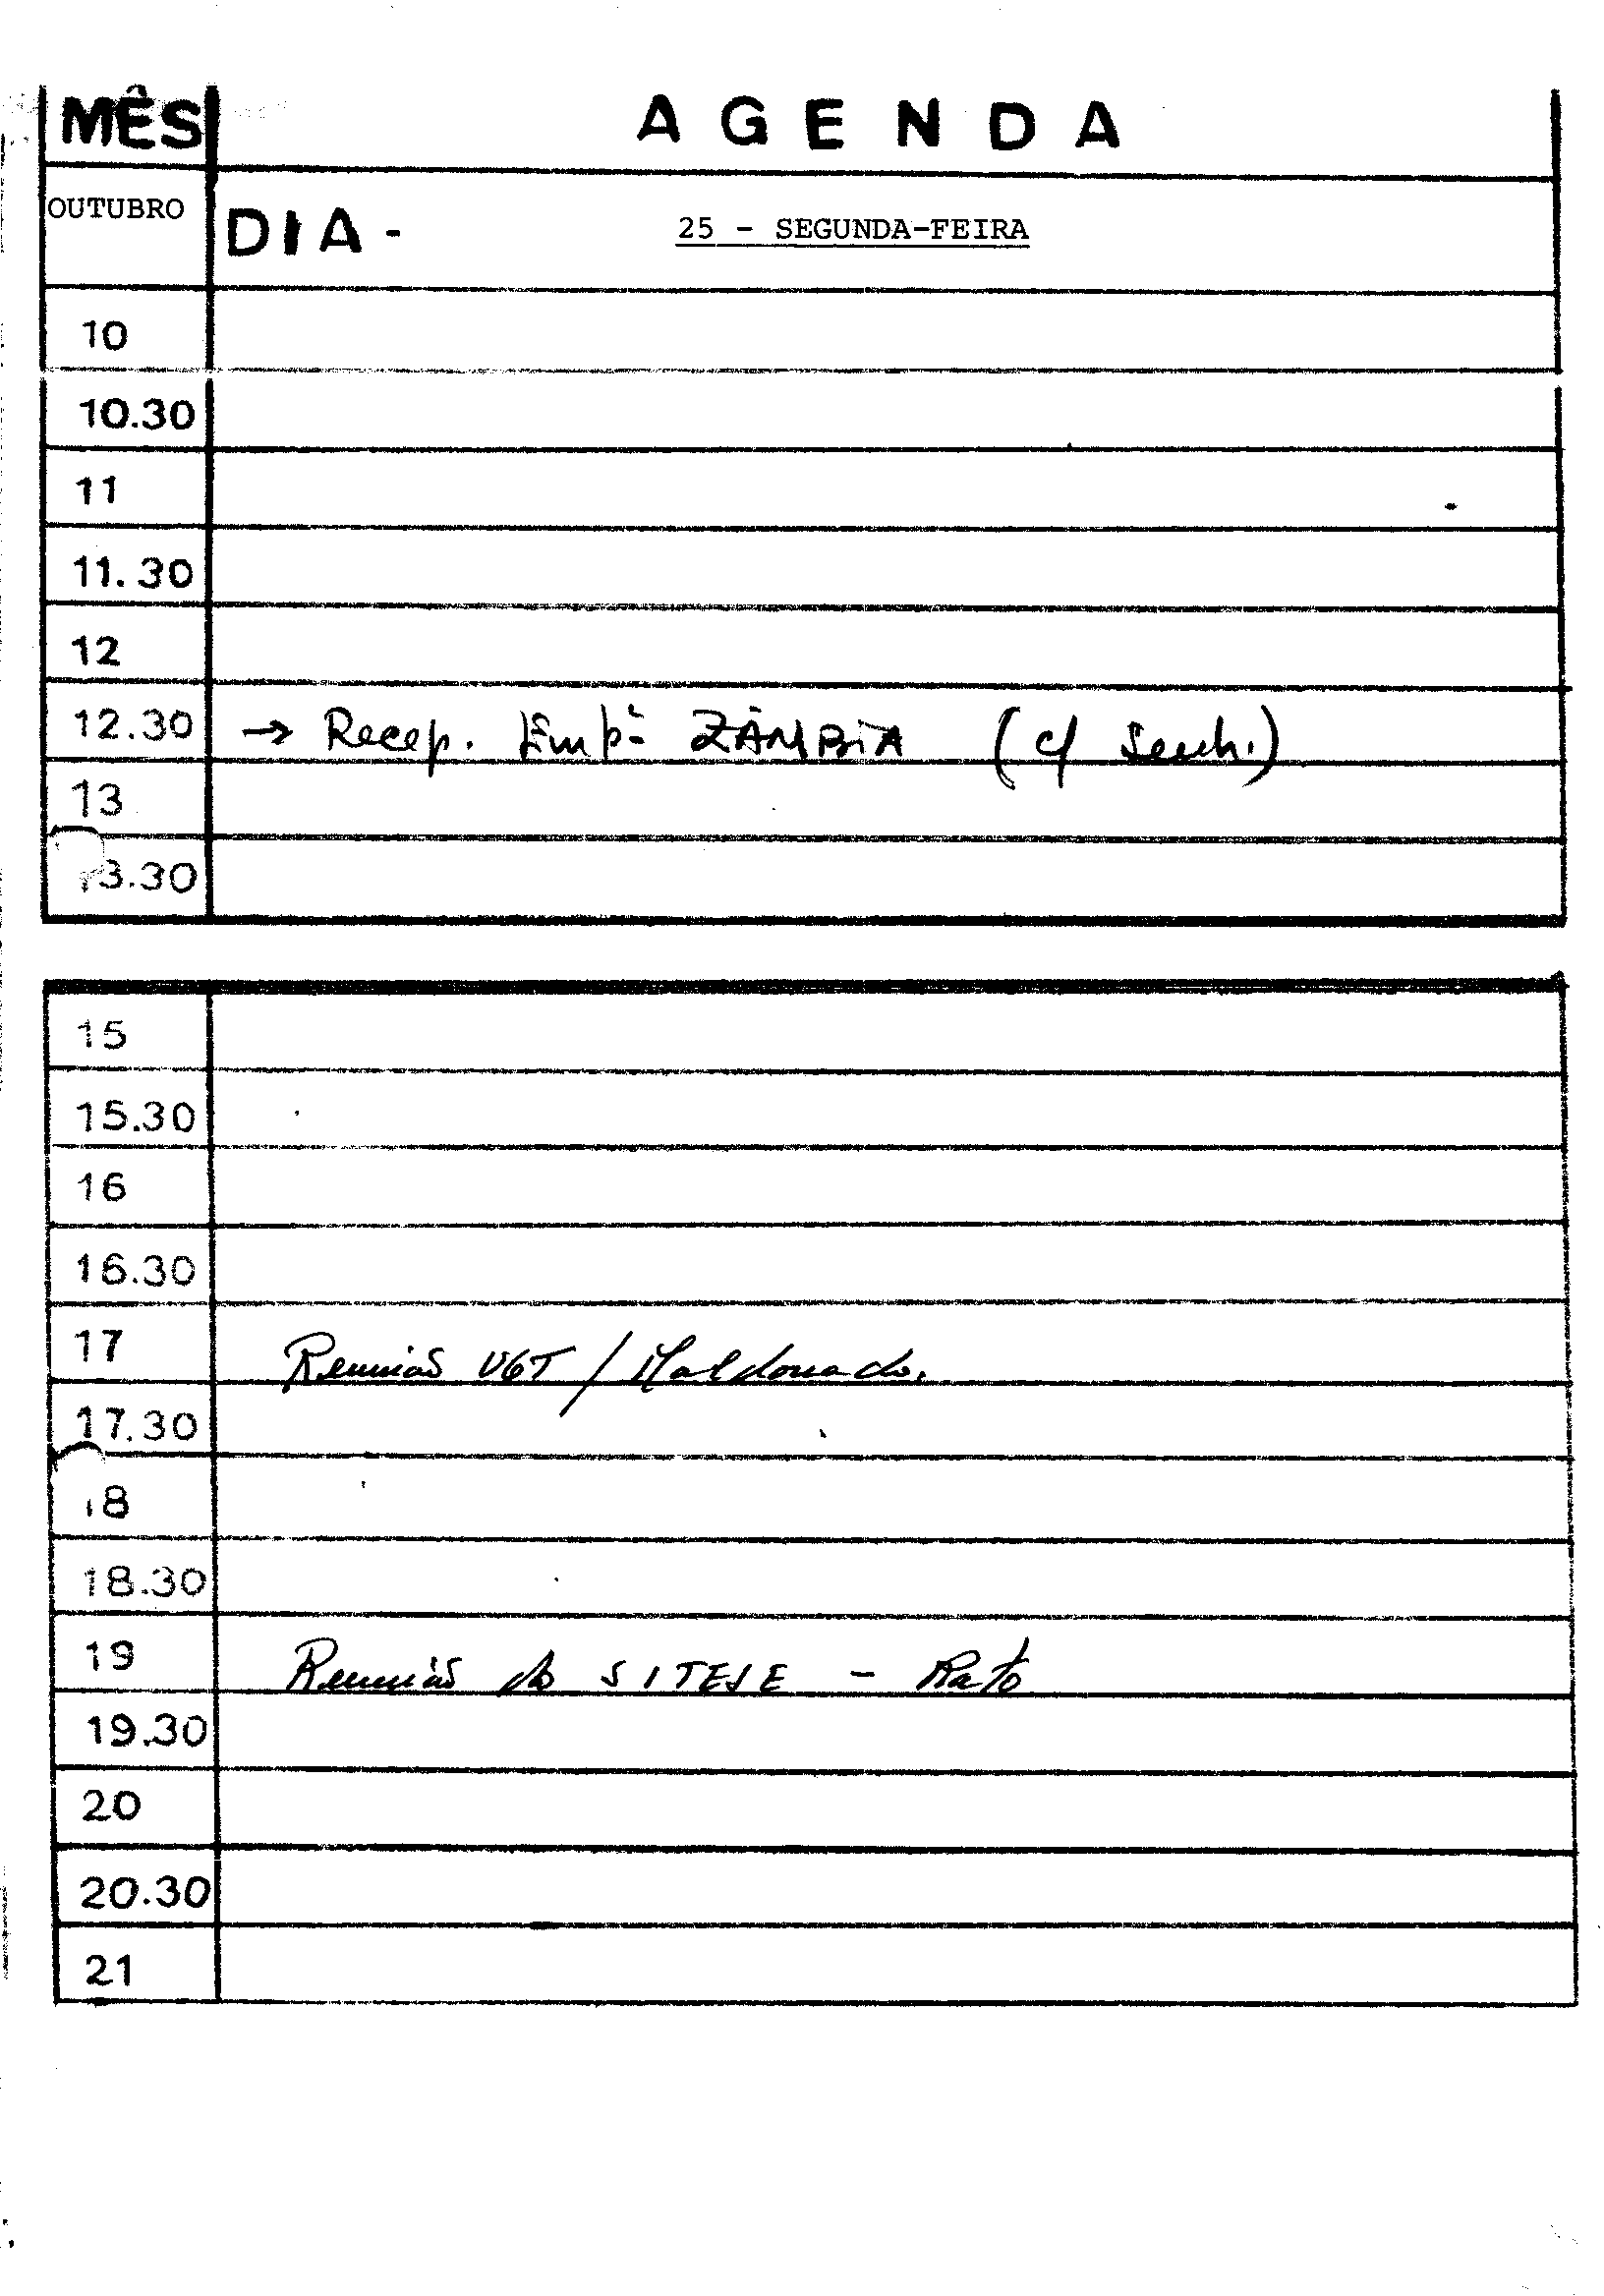 MÊS AGENDA
OUTUBRO DIA - 25 - SEGUNDA-FEIRA
10
10.30
11
11.30
12
12.30 → Recep. ZÂMBIA (c/ Senh.)
13
13.30
15
15.30
16
16.30
17 Reunião UGT / Maldonado.
17.30
18
18.30
19 Reunião do SITESE - Rato
19.30
20
20.30
21